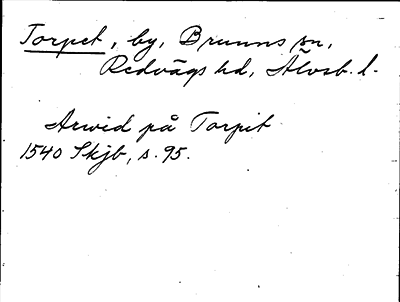 Torpet, by, Brunns sn,
Redvägs hd, Älvsb. l.
Arwid på Torpit
1540 Skjb, s. 95.